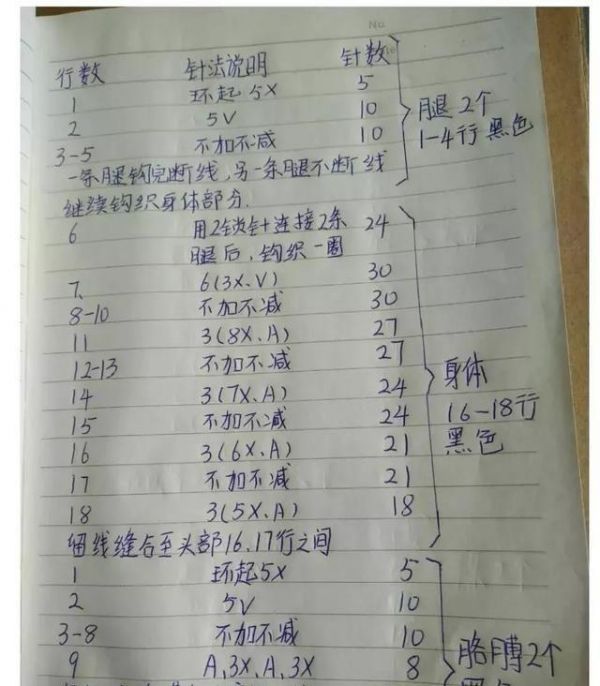 No
行数 针法说明 针数
1 环起5X 5
2 5V 10
3-5 不加不减 10
腿2个
1-4行黑色
一条腿钩完断线,另一条腿不断线
继续钩织身体部分.
6 用2锁针连接2条 24
腿后,钩织一圈
7、 6(3X.V) 30
8-10 不加不减 30
11 3(8X.A) 27
12-13 不加不减 27
14 3(7X.A) 24
15 不加不减 24
16 3(6X.A) 21
17 不加不减 21
18 3(5X.A) 18
身体
16-18行
黑色
留线缝合至头部16.17行之间
1 环起5X 5
2 5V 10
3-8 不加不减 10
9 A,3X,A,3X 8
胳膊2个